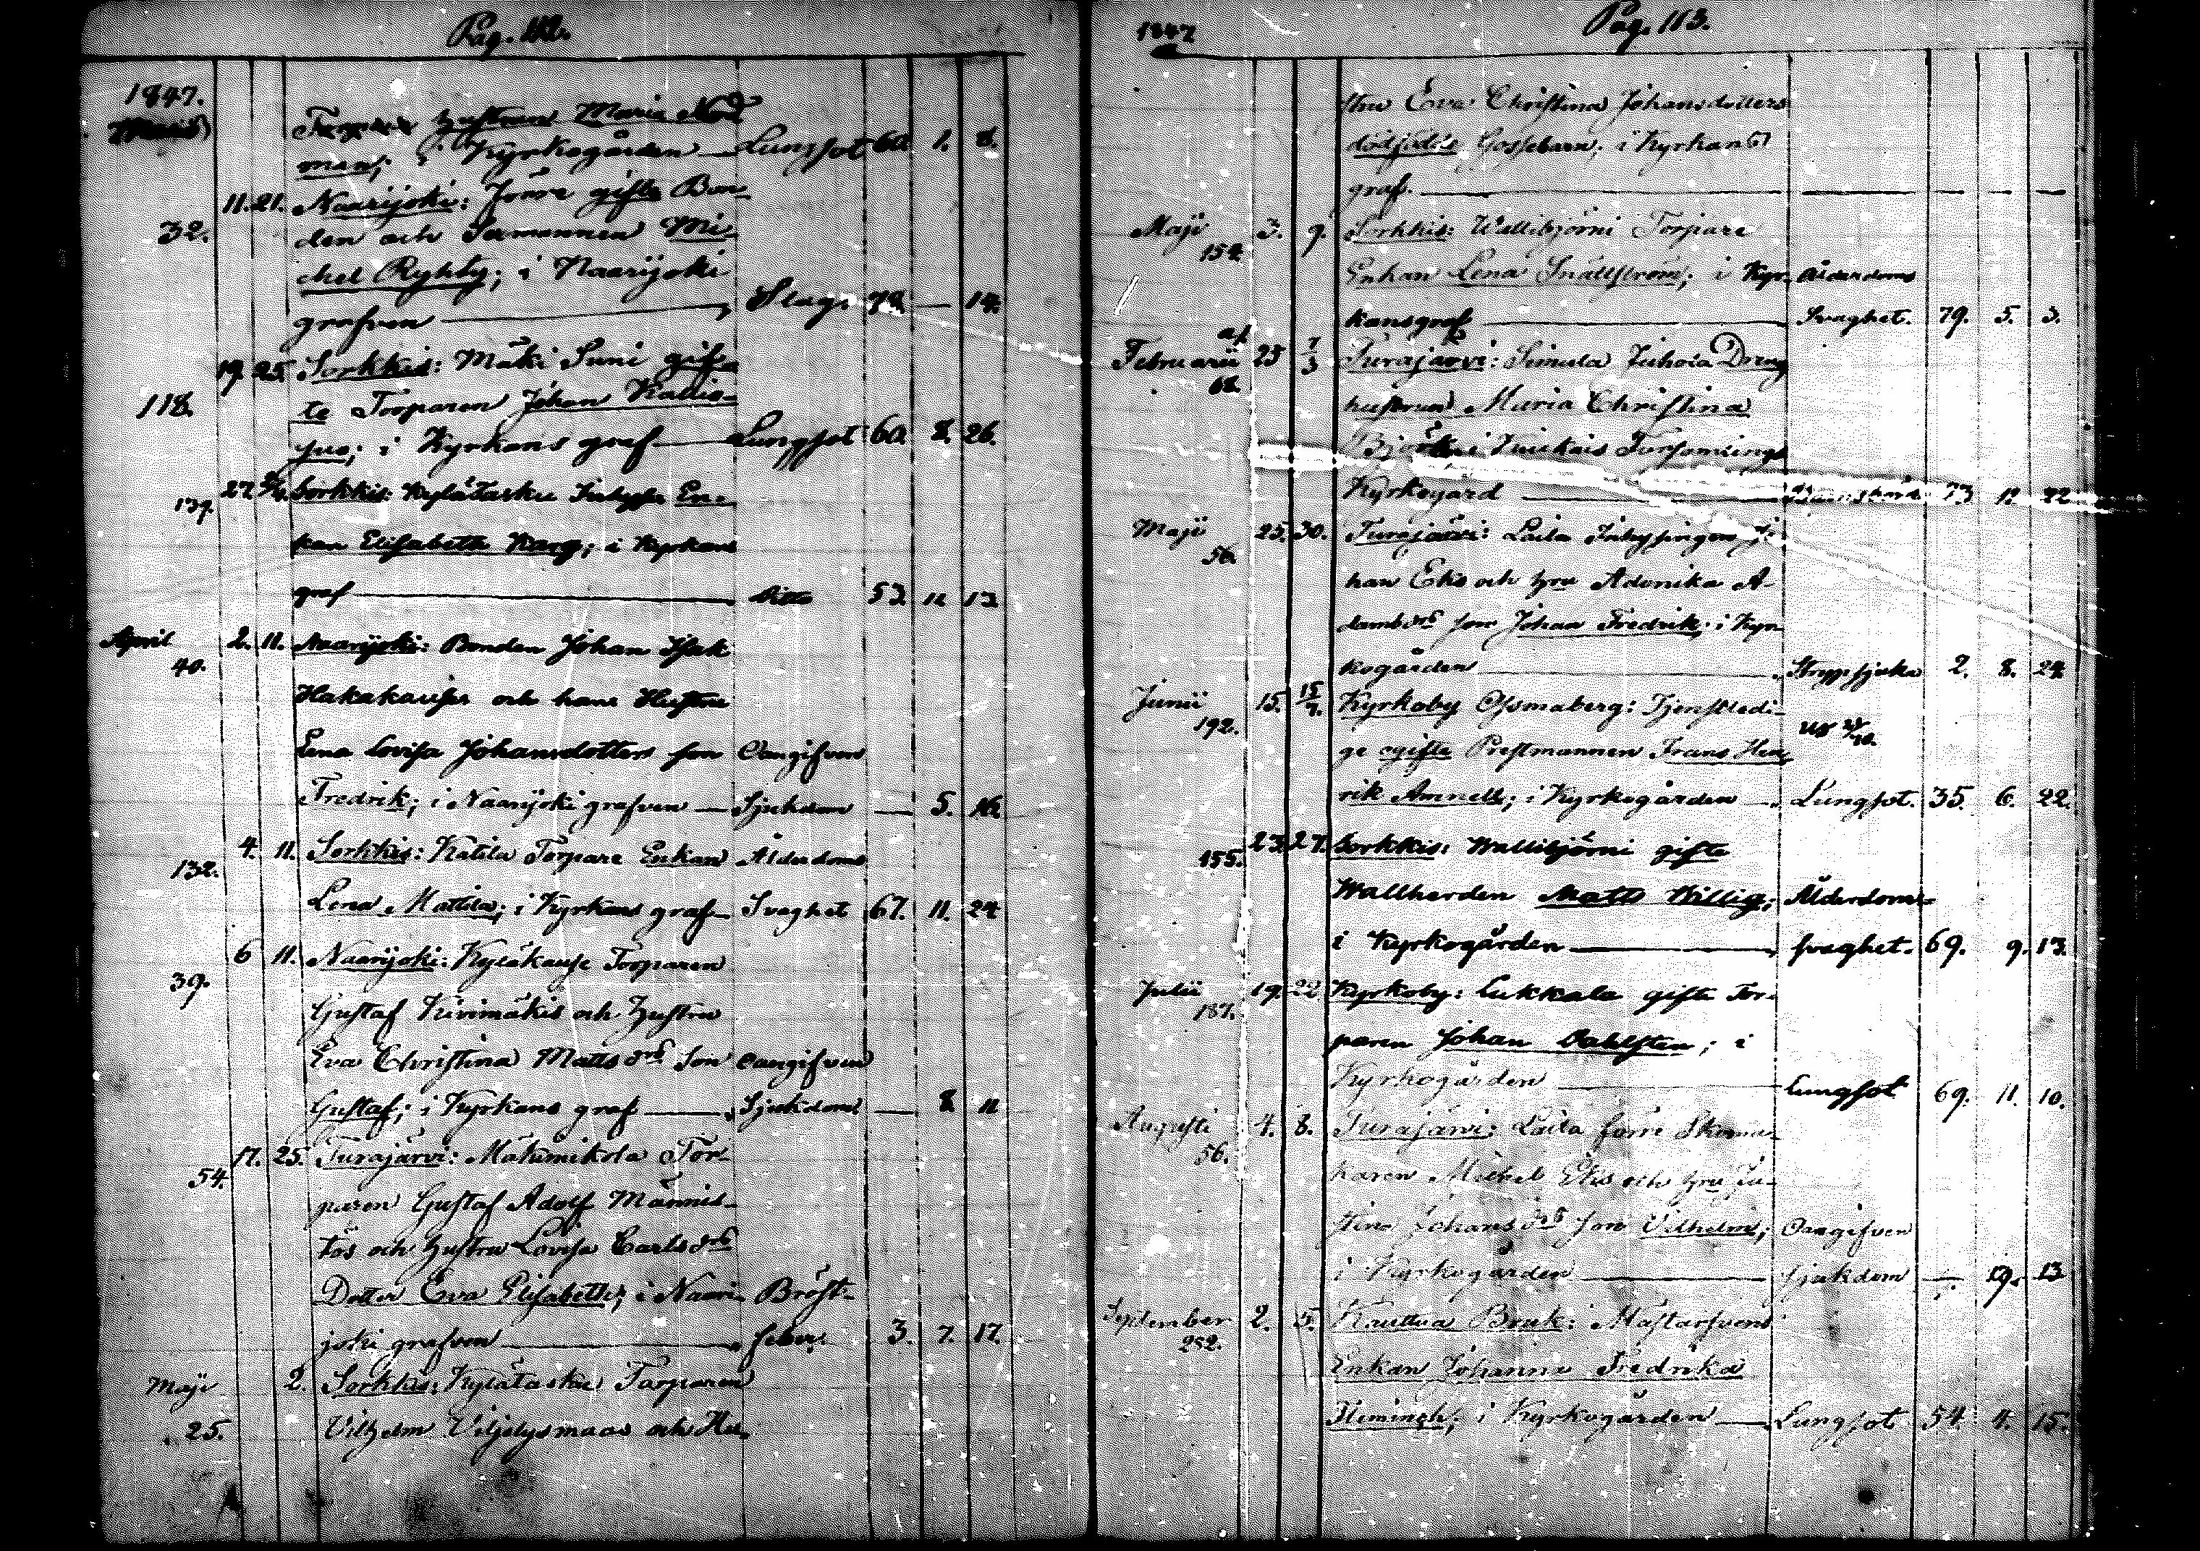 Pag. 112.
1847.
Hustrun Maria Nord
man; i Kyrkogården — Lungsot 60. 1. 8.
11. 21. Naarijoki: Förre gifte Bon-
32. den och Sexmannen Mi-
chel Ryhty; i Naarijoki
grafven — Slag. 78. — 14.
19. 25. Sorkkis: Mäki Suni gif-
118. te Torparen Johan Kallis-
jus; i Kyrkans graf — Lungsot 60. 8. 26.
27. Sorkkis: Kylätasku Inhyses En-
139. kan Elisabeth Karg; i Kyrkans
graf — Ditto 53. 11. 13.
April 2. 11. Naarijoki: Bonden Johan Isak
40.
Hakakauses och hans Hustru
Lena Lovisa Johansdotters son Oangifven
Fredrik; i Naarijoki grafven — Sjukdom — 5. 16.
4. 11. Sorkkis: Katila Torpare Enkan Ålderdoms
132.
Lena Mattila; i Kyrkans graf — Svaghet 67. 11. 24.
6 11. Naarijoki: Kyläkause Torparen
39.
Gustaf Kivimäkis och Hustru
Eva Christina Matts drs Son oangifven
Gustaf; i Kyrkans graf — Sjukdom — 8. 11
17. 25. Turajärvi: Mäkimikola Tor-
54.
paren Gustaf Adolf Männis-
tös och Hustru Lovisa Carls drs
Dotter Eva Elisabeth; i Naari- Bröst-
joki grafven — feber. 3. 7. 17.
Maji 2. Sorkkis: Kylätasku Torparen
25. Vilhelm Viljelysmaas och Hu-
1847
Pag. 113.
stru Eva Christina Johansdotters
dödfödde Gossebarn; i Kyrkans
graf. — — — —
Maji 3. 9. Sorkkis: Wallibjörni Torpare
154.
Enkan Lena Snällström; i Kyr- Ålderdoms
kansgraf — Svaghet. 79. 5. 3.
af
Februarii 25 7/3 Turajärvi: Simula Juhola Dreng
68.
hustrun Maria Christina
Björk; i Kiukais Församlings
Kyrkogård — 73 11. 22
Maji 25. 30. Turajärvi: Laila Inhysingen Jo-
56.
han Eks och Hru Adonika A-
dams drs son Johan Fredrik; i Kyr-
kogården — Strypsjuka 2. 8. 24.
Junii 15. 15/7. Kyrkoby Osmaberg: Tjenstledi-
192.
ge ogifte Prestmannen Frans Hen-
rik Amnell; i Kyrkogården — Lungsot. 35. 6. 22.
23. 27. Sorkkis: Wallibjörni gifte
155.
Wallherden Matts Willig; Ålderdoms-
i Kyrkogården — svaghet. 69. 9. 13.
Julii 19. 22 Kyrkoby: Lukkala gifte Tor-
187.
paren Johan Dahlsten; i
Kyrkogården — Lungsot 69. 11. 10.
Augusti 4. 8. Turajärvi: Laila förre Skoma-
56.
karen Michel Eks och Hru Ju-
stina Johans drs son Vilhelm; Oangifven
i Kyrkogården — sjukdom — 19. 13
September 2. 5. Kauttua Bruk: Mästarsvens
252.
Enkan Johanna Fredrika
Flemingh; i Kyrkogården — Lungsot 54. 4. 15.